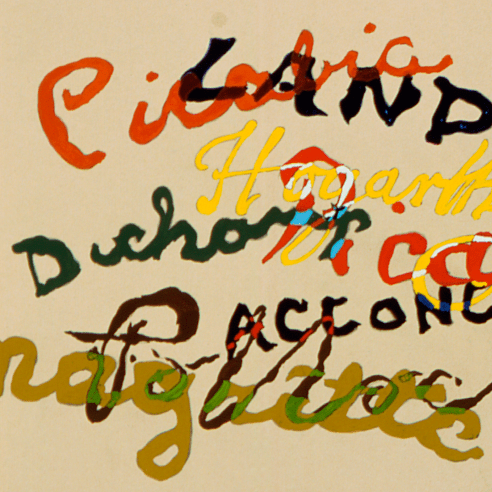 Picabia
LAND
Hogarth
Duchamp
Pica
ACCONC
magritte